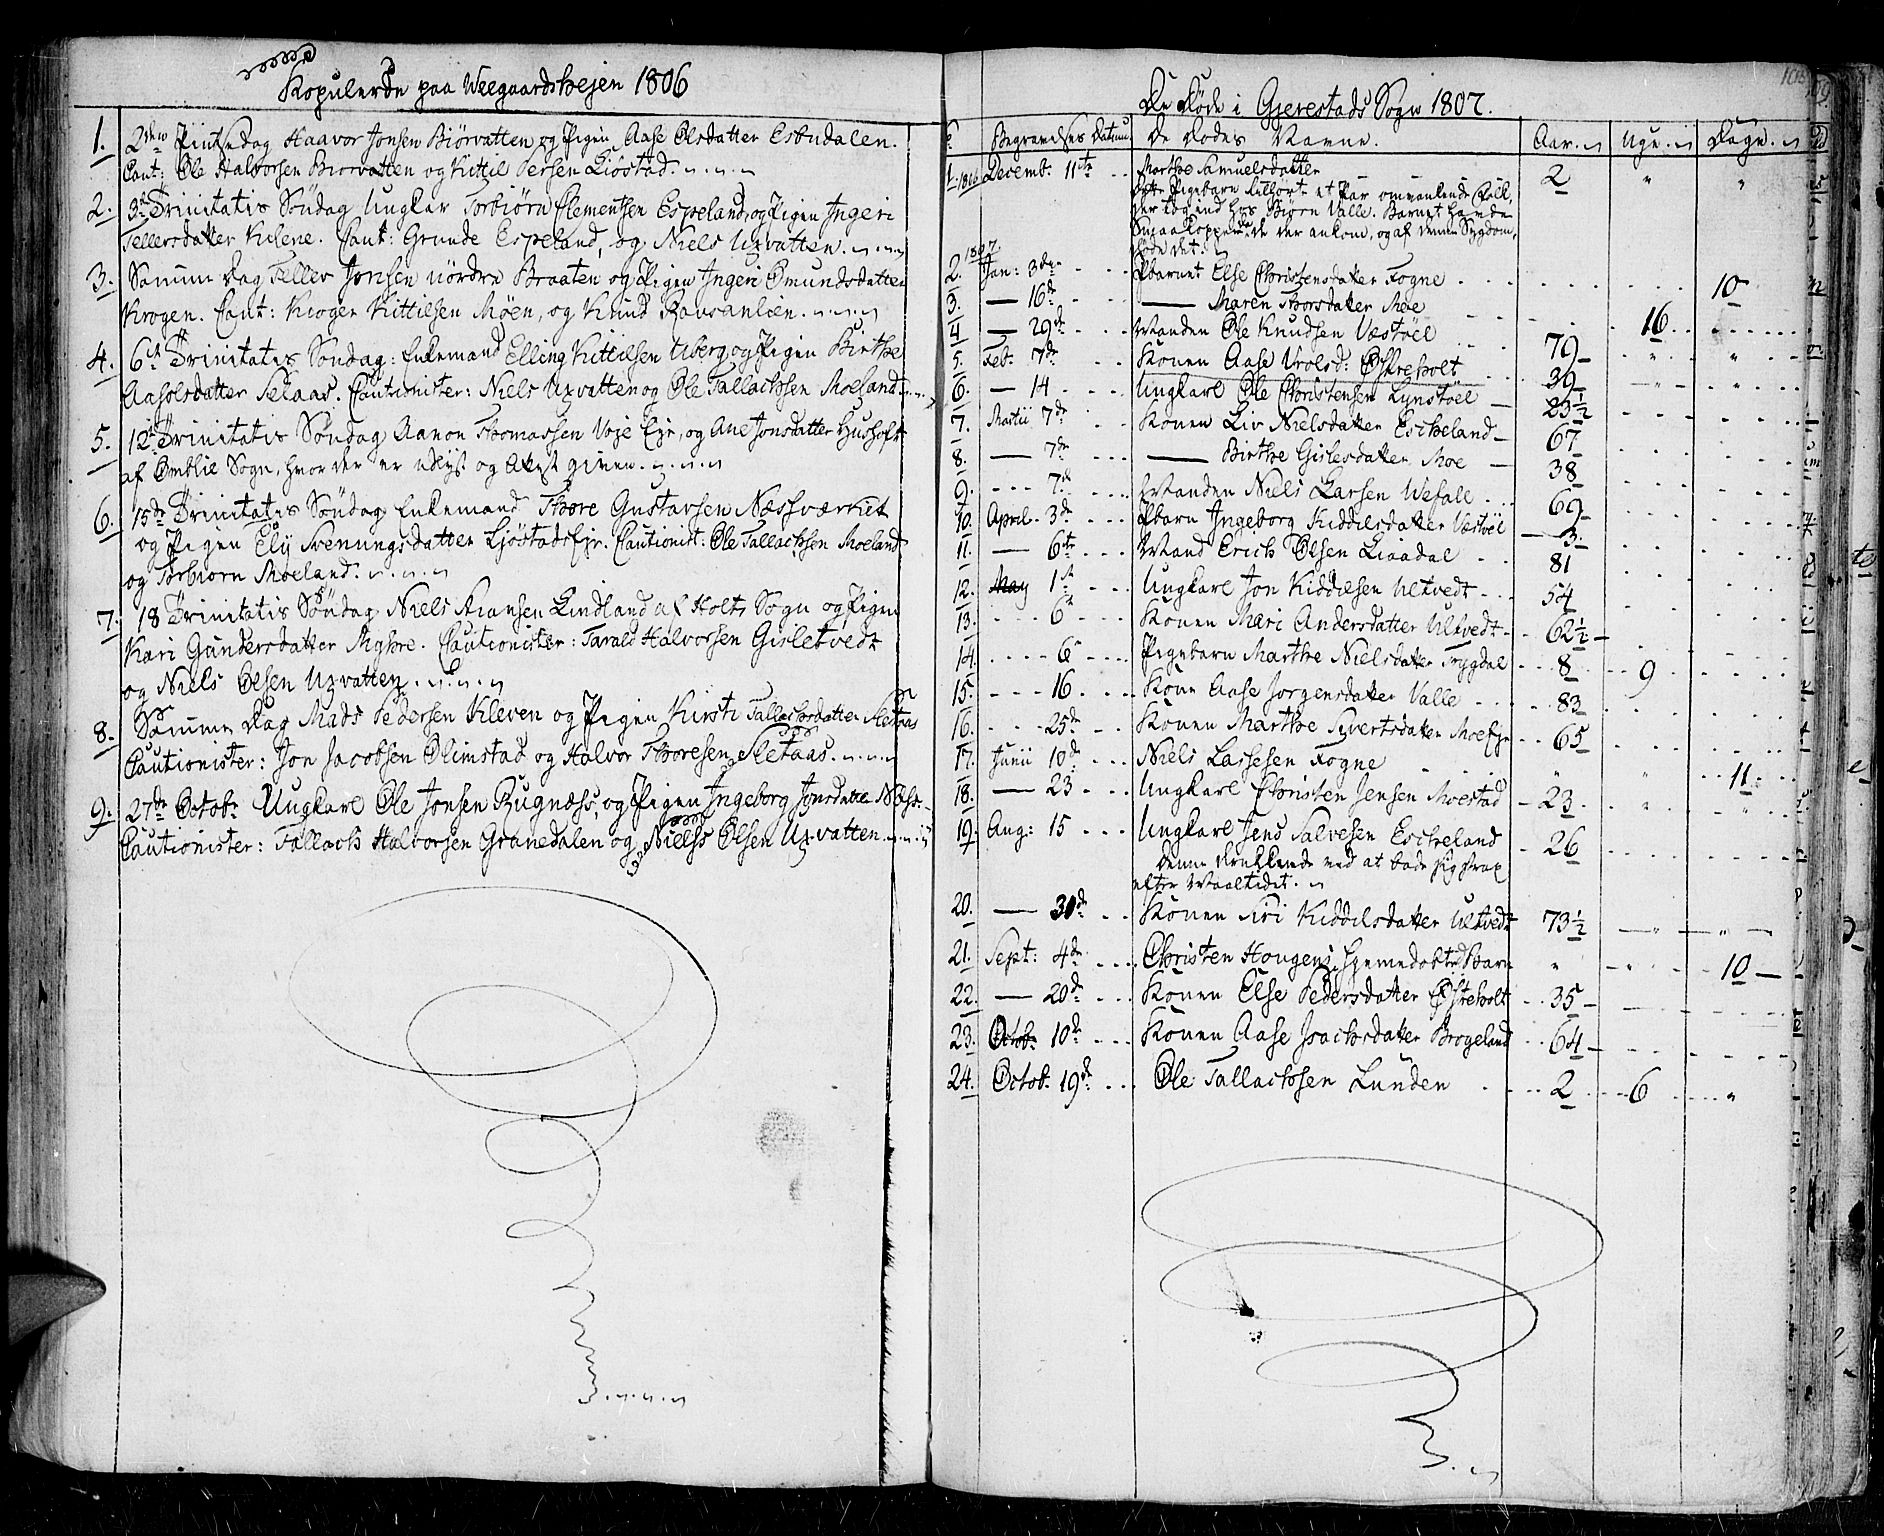 Kopulerede paa Weegaardsheien 1806
1. 2den Pintsedag Haavor Jonsen Biörvatten og Pigen Aase Olsdatter Esbudalen.
Caut: Ole Halvorsen Biorvatten og Kittil Persen Liöstad.
2. 3die Trinitatis Söndag Ungkar Torbiörn Clementsen Espeland, og Pigen Ingeri
Tellersdatter Kilene. Caut: Grunde Espeland, og Niels Uxvatten.
3. Samme Dag Tellev Jonsen nördre Braaten og Pigen Ingeri Omundsdatter
Krogen. Caut: Kroger Kittilsen Möen, og Knud Ravsanlien.
4. 6te Trinitatis Söndag: Enkemand Elling Kittilsen Uberg og Pigen Birthe
Aasolsdatter Selaas. Cautionister: Niels Uxvatten og Ole Tallachsen Moeland
5. 12te Trinitatis Söndag Aanon Thomassen Voje Ejr, og Ane Jonsdatter Husfoft
af Omblie Sogn, hvor der er udlyst og Attest given.
6. 15de Trinitatis Söndag Enkemand Thore Gustavsen Næssværket
og Pigen Ely Svenungsdatter Ljöstadsejr. Cautionist: Ole Tallachsen Moeland
og Torbiorn Moeland.
7. 18 Trinitatis Söndag Niels Aransen Lindland af Holts Sogn og Pigen
Kari Gundersdatter Myhre. Cautionister: Tarald Halvorsen Gisletvedt
og Niels Olsen Uxvatten.
8. Samme Dag Mads Pedersen Kleven og Pigen Kirsti Tallachsdatter Sletaas
Cautionister: Jon Jacobsen Olimstad og Halvor Thoresen Sletaas.
9. 27de Octobr Ungkarl Ole Jonsen Rugnæss, og Pigen Ingeborg Jonsdatter Næss.
Cautionister: Tallach Halvorsen Granedalen og Nielss Olsen Uxvatten.
De Döde i Gjerestads Sogn 1807.
Begravelses Datum De Dödes Navne. Aar. Uge. Dage.
1. 1806 Decemb. 11te Marthe Samuelsdatter 2 " "
dette Pigebarn tilhörte et Par omvankende Folk,
der tog ind hos Biörn Valle. Barnet havde
Smaakopper da de der ankom, og af denne Sygdom,
döde det.
1807
2. Jan: 3die Pbarnet Else Christensdatter Fogne 10
3. — 16de — Maren Thorsdatter Moe 16
4. — 29de Manden Ole Knudsen Vestöel 79 " "
5. Feb. 7de Konen Aase Vrolsd: Østreholt 39
6. — 14 Ungkarl Ole Christensen Lynstöel 23½
7. Martii 7de Konen Liv Nielsdatter Escheland 67
8. — 7de — Birthe Gislesdatter Moe 38
9. 7de Manden Niels Larsen Wefall 69
10. April. 3de Pbarn Ingeborg Kiddilsdatter Vestöl 3
11. — 6te Mand Erich Olsen Liaadal 81
12. May 1st Ungkarl Jon Kiddilsen Ultvedt 54
13. 6te Konen Mari Andersdatter Ultvedt 62½
14. 6te Pigebarn Marthe Nielsdatter Trygdal 8 9
15. 16 Kone Aase Jorgensdatter Valle 83
16. 25de Konen Marthe Syvertsdatter Moeejr 65
17. Junii 10de Niels Lassesen Fogne " " 11
18. — 23 Ungkarl Christen Jensen Moestad 23 " "
19. Aug: 15 Ungkarl Jens Salvesen Escheland 26
denne druknede ved at bade sig strax
efter Maaltidet.
20. — 30de Konen Siri Kiddilsdatter Ultvedt 73½ " "
21. Sept: 4de Christen Hougens hjemedöbte Barn " " 10
22. — 20de Konen Else Pedersdatter Østeholt 35
23. Octob. 10de Konen Aase Isachsdatter Brogeland 64
24. Octob. 19de Ole Tallachsen Lunden 2 6 "